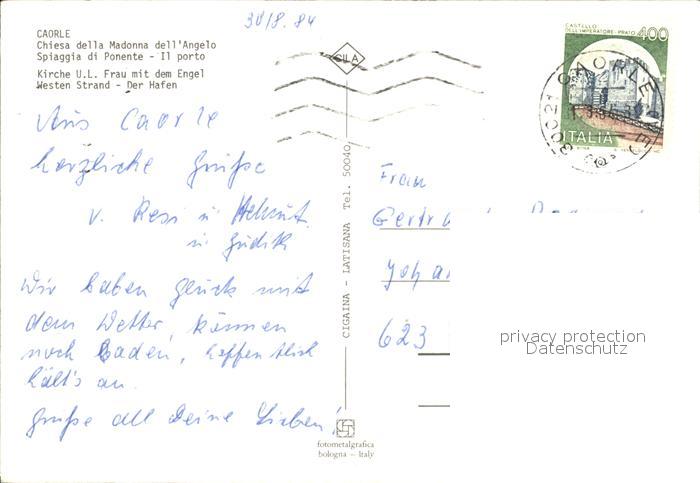 30/8.84
CAORLE
Chiesa della Madonna dell'Angelo
Spiaggia di Ponente - Il porto
Kirche U.L. Frau mit dem Engel
Westen Strand - Der Hafen
Aus Caorle
herzliche Grüße
v. Resi u Helmut
u Judith
Wir haben Glück mit
dem Wetter, können
noch baden, hoffentlich
hält's an.
Grüße all Deine Lieben!
CILA
CIGAINA - LATISANA Tel. 50040
fotometalgrafica
bologna - Italy
CASTELLO
DELL'IMPERATORE - PRATO 400
ITALIA
30021 CAORLE
Frau
Gertr
Joha
623
privacy protection
Datenschutz